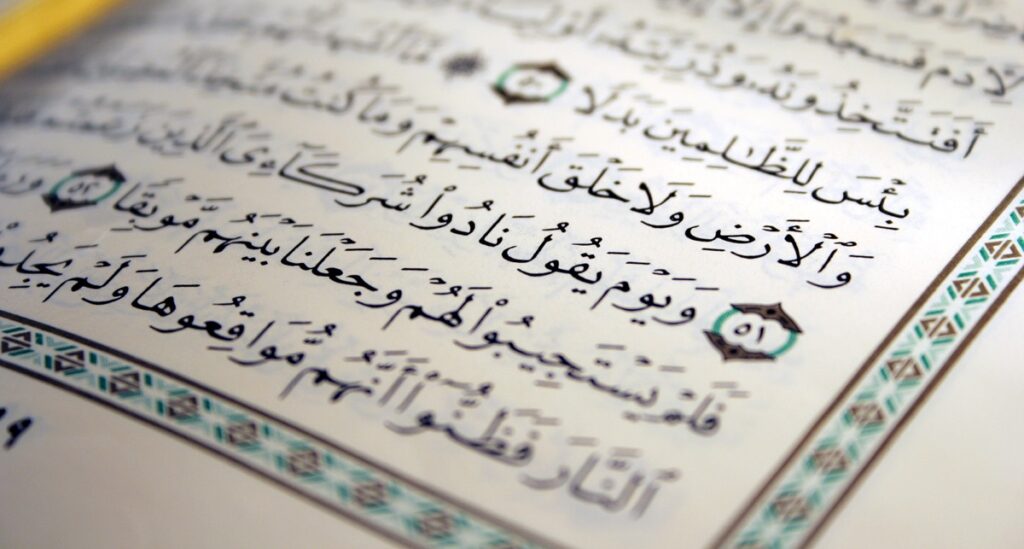 لِأٓدَمَ فَسَجَدُوٓا۟ إِلَّآ
أَفَتَتَّخِذُونَهُۥ وَذُرِّيَّتَهُۥٓ
بِئْسَ لِلظَّٰلِمِينَ بَدَلًا ٥٠ ۞ مَّآ أَشْهَدتُّهُمْ
وَٱلْأَرْضِ وَلَا خَلْقَ أَنفُسِهِمْ وَمَا كُنتُ مُتَّخِذَ
٥١ وَيَوْمَ يَقُولُ نَادُوا۟ شُرَكَآءِىَ ٱلَّذِينَ زَعَمْتُمْ
فَلَمْ يَسْتَجِيبُوا۟ لَهُمْ وَجَعَلْنَا بَيْنَهُم مَّوْبِقًا ٥٢
ٱلنَّارَ فَظَنُّوٓا۟ أَنَّهُم مُّوَاقِعُوهَا وَلَمْ
٩٩